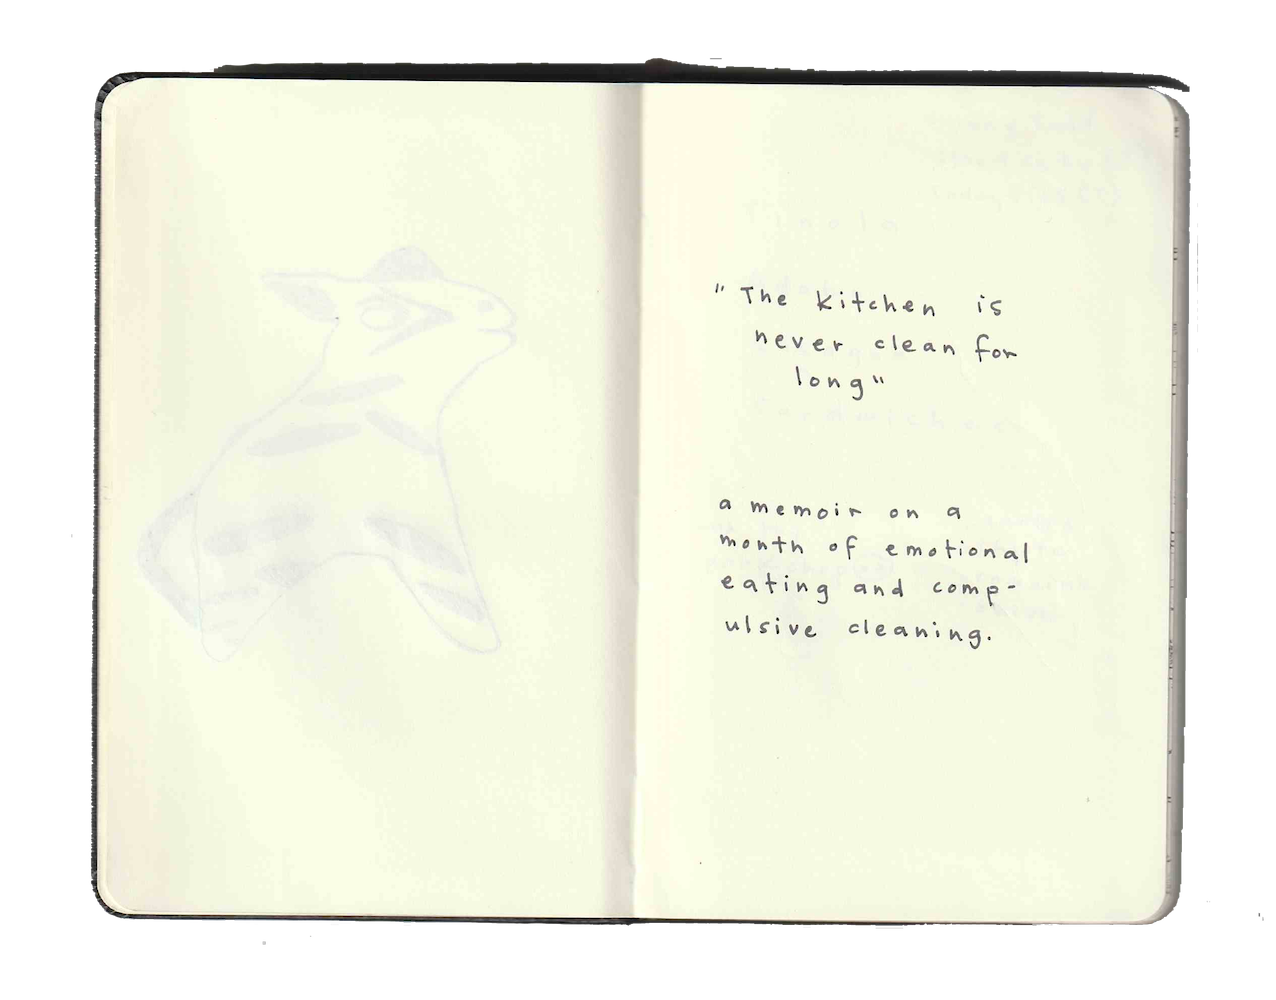 "The kitchen is
never clean for
long"
a memoir on a
month of emotional
eating and comp-
ulsive cleaning.